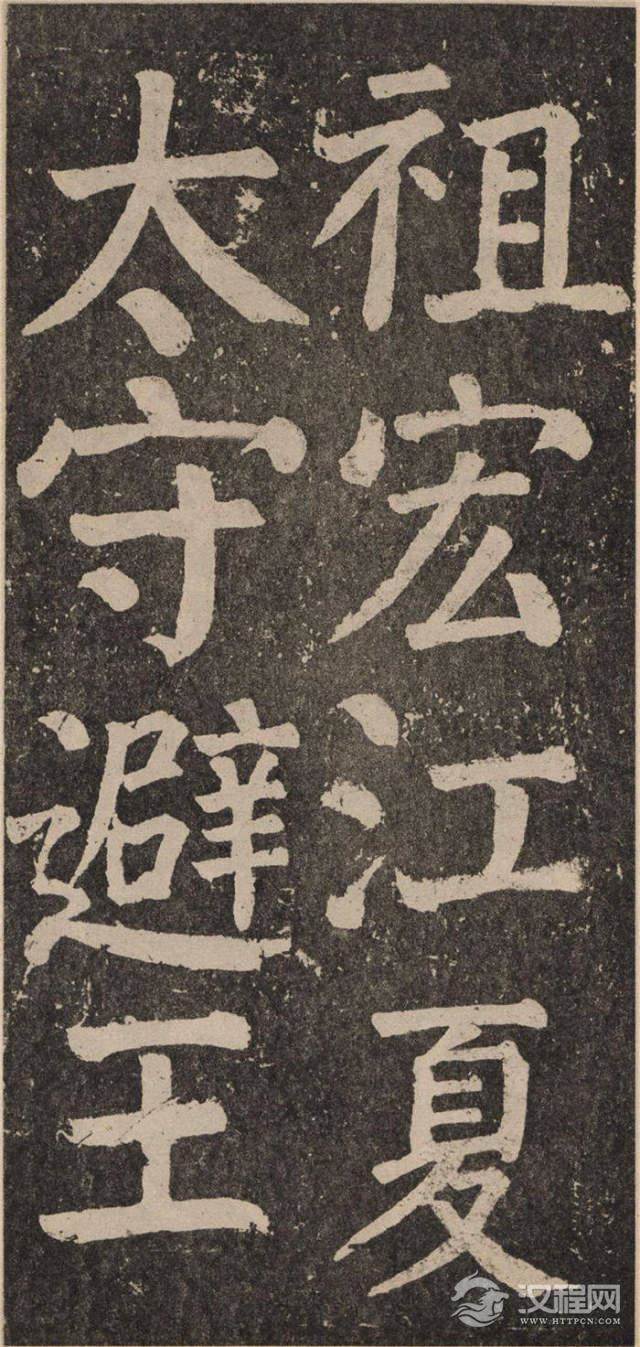 祖宏江夏
太守避王
汉程网
WWW.HTTPCN.COM